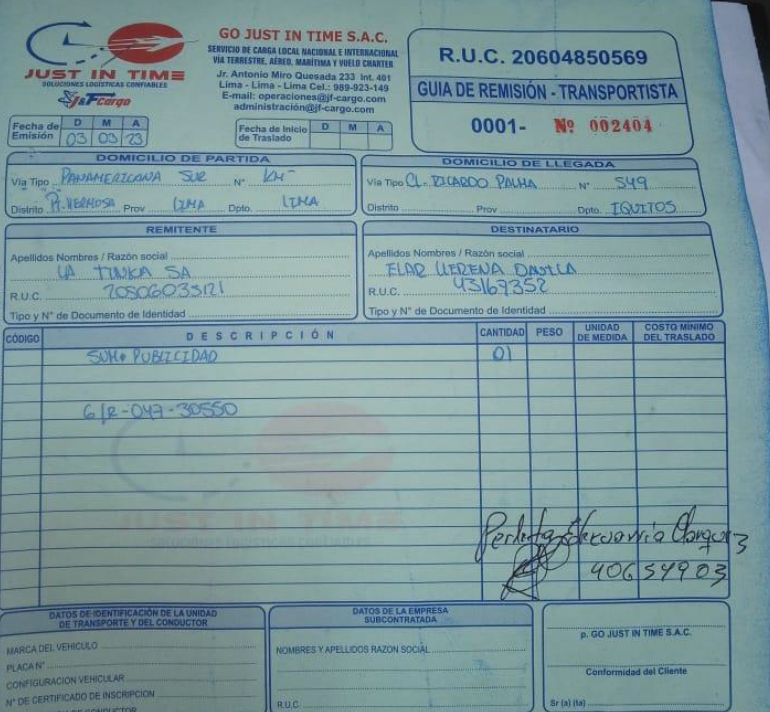 JUST IN TIME
SOLUCIONES LOGÍSTICAS CONFIABLES
J&F Cargo
GO JUST IN TIME S.A.C.
SERVICIO DE CARGA LOCAL NACIONAL E INTERNACIONAL
VÍA TERRESTRE, AÉREO, MARÍTIMA Y VUELO CHARTER
Jr. Antonio Miro Quesada 233 Int. 401
Lima - Lima - Lima Cel.: 989-923-149
E-mail: operaciones@jf-cargo.com
administración@jf-cargo.com
R.U.C. 20604850569
GUIA DE REMISIÓN - TRANSPORTISTA
0001- Nº 002404
Fecha de Emisión D M A
03 03 23
Fecha de Inicio de Traslado D M A
DOMICILIO DE PARTIDA
Via Tipo PANAMERICANA SUR Nº KM
Distrito Pt. HERMOSA Prov LIMA Dpto. LIMA
DOMICILIO DE LLEGADA
Via Tipo CL. RICARDO PALMA Nº 549
Distrito Prov Dpto. IQUITOS
REMITENTE
Apellidos Nombres / Razón social
LA TINKA SA
R.U.C. 20506035121
Tipo y Nº de Documento de Identidad
DESTINATARIO
Apellidos Nombres / Razón social
R.U.C. 43167352
Tipo y Nº de Documento de Identidad
CÓDIGO DESCRIPCIÓN CANTIDAD PESO UNIDAD DE MEDIDA COSTO MÍNIMO DEL TRASLADO
PUBLICIDAD 01
G/R-047-30550
JUST IN TIME
SOLUCIONES LOGISTICAS CONFIABLES
40654903
DATOS DE IDENTIFICACIÓN DE LA UNIDAD
DE TRANSPORTE Y DEL CONDUCTOR
MARCA DEL VEHICULO
PLACA Nº
CONFIGURACION VEHICULAR
Nº DE CERTIFICADO DE INSCRIPCION
DATOS DE LA EMPRESA
SUBCONTRATADA
NOMBRES Y APELLIDOS RAZON SOCIAL
R.U.C
p. GO JUST IN TIME S.A.C.
Conformidad del Cliente
Sr (a) (ta)